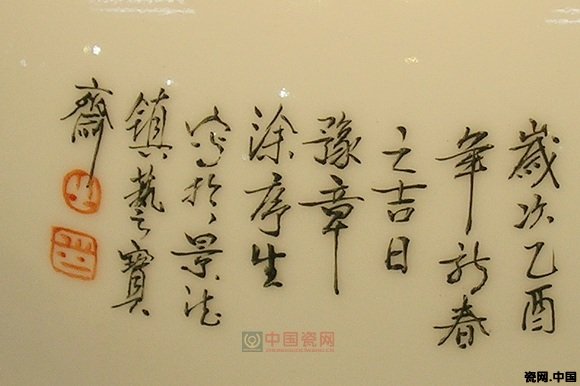 歲次乙酉
年新春
之吉日
豫章
涂序生
寫於景德
鎮藝寶
齋
中国瓷网
瓷网.中国